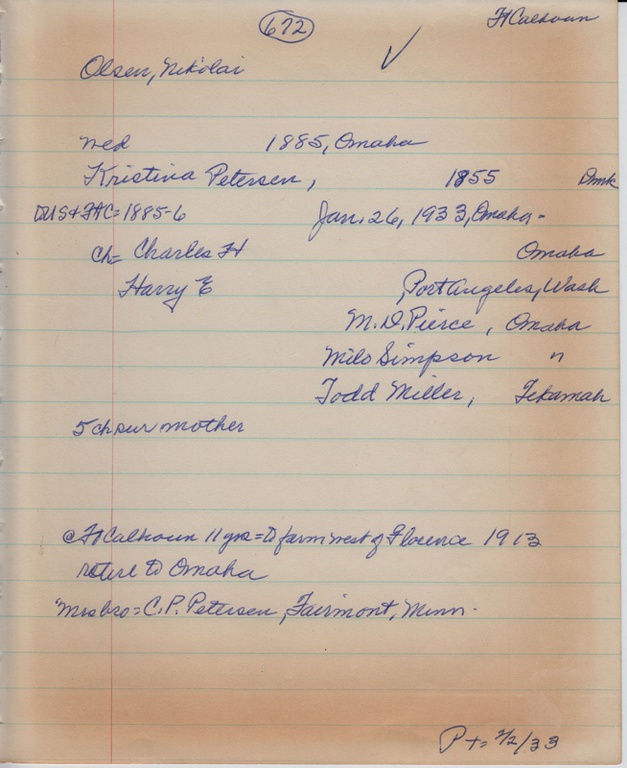 672
Ft Calhoun
Olsen, Nikolai
med 1885, Omaha
Kristina Petersen, 1855 Dmk
to US & Ft C = 1885-6 Jan. 26, 1933, Omaha -
ch = Charles H Omaha
Harry E Port Angeles, Wash
M. D. Pierce, Omaha
Milo Simpson "
Todd Miller, Tekamah
5 ch sur mother
@ Ft Calhoun 11 yrs = to farm west of Florence 1913
retire to Omaha
Mrs bro = C. P. Petersen, Fairmont, Minn.
P t = 2/2/33